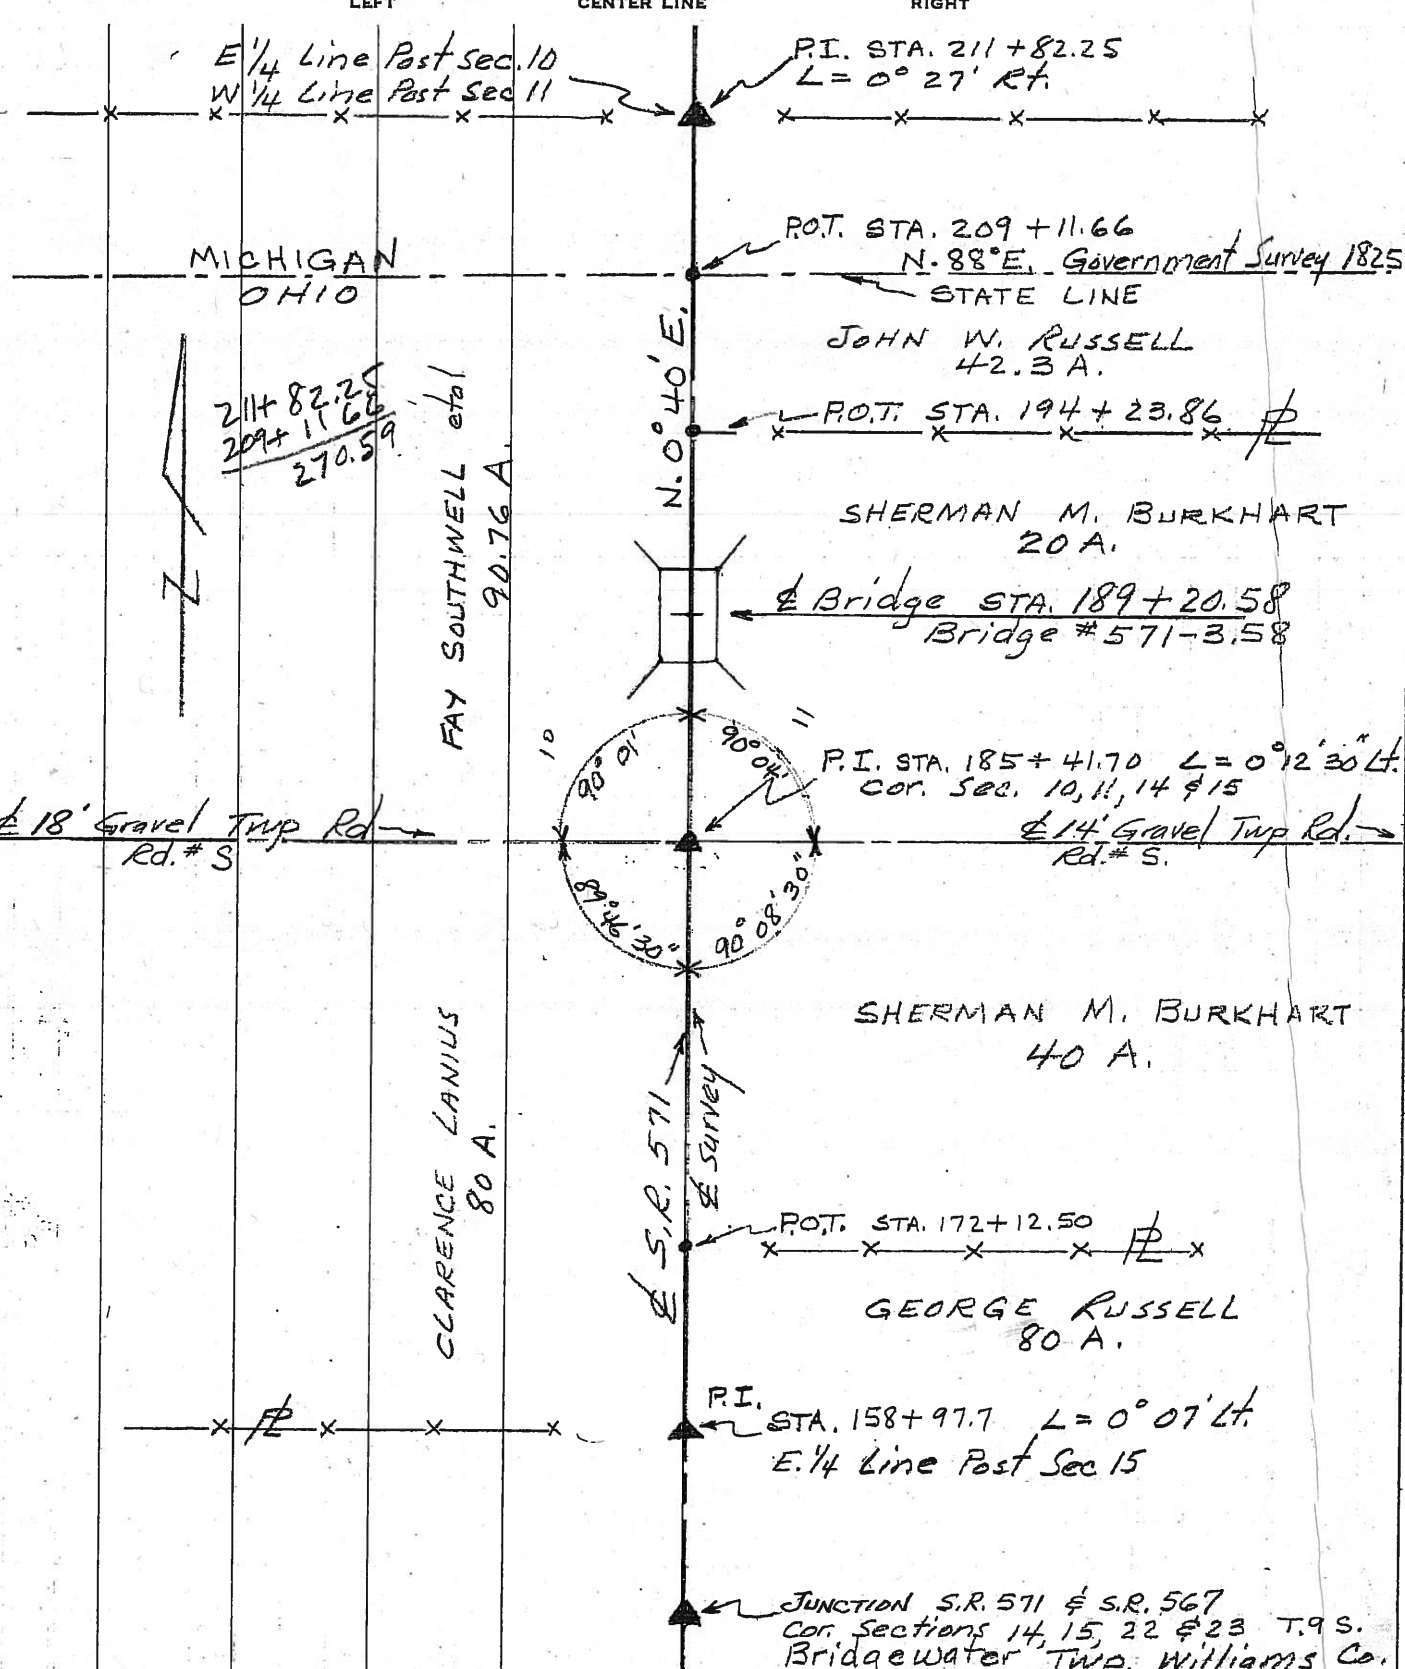 LEFT CENTER LINE RIGHT
E 1/4 Line Post Sec. 10
W 1/4 Line Post Sec 11
P.I. STA. 211 + 82.25
L = 0° 27' Rt.
P.O.T. STA. 209 + 11.66
N. 88° E. Government Survey 1825
STATE LINE
MICHIGAN
OHIO
JOHN W. RUSSELL
42.3 A.
211+ 82.25
209+ 11 66
270.59
N. 0° 40' E.
P.O.T. STA. 194 + 23.86 PL
FAY SOUTHWELL etal
90.76 A.
N
SHERMAN M. BURKHART
20 A.
℄ Bridge STA. 189 + 20.58
Bridge # 571-3.58
10
11
90° 01'
90° 04'
P.I. STA. 185 + 41.70 L = 0° 12' 30" Lt.
Cor. Sec. 10, 11, 14 & 15
℄ 18' Gravel Twp Rd
Rd. # S
℄ 14' Gravel Twp Rd.
Rd. # S.
89° 46' 30"
90° 08' 30"
SHERMAN M. BURKHART
40 A.
CLARENCE LANIUS
80 A.
℄ S.R. 571
℄ Survey
P.O.T. STA. 172+12.50 PL
GEORGE RUSSELL
80 A.
PL
P.I.
STA. 158+97.7 L = 0° 07' Lt.
E. 1/4 Line Post Sec 15
JUNCTION S.R. 571 & S.R. 567
Cor. Sections 14, 15, 22 & 23 T.9 S.
Bridgewater Twp. Williams Co.